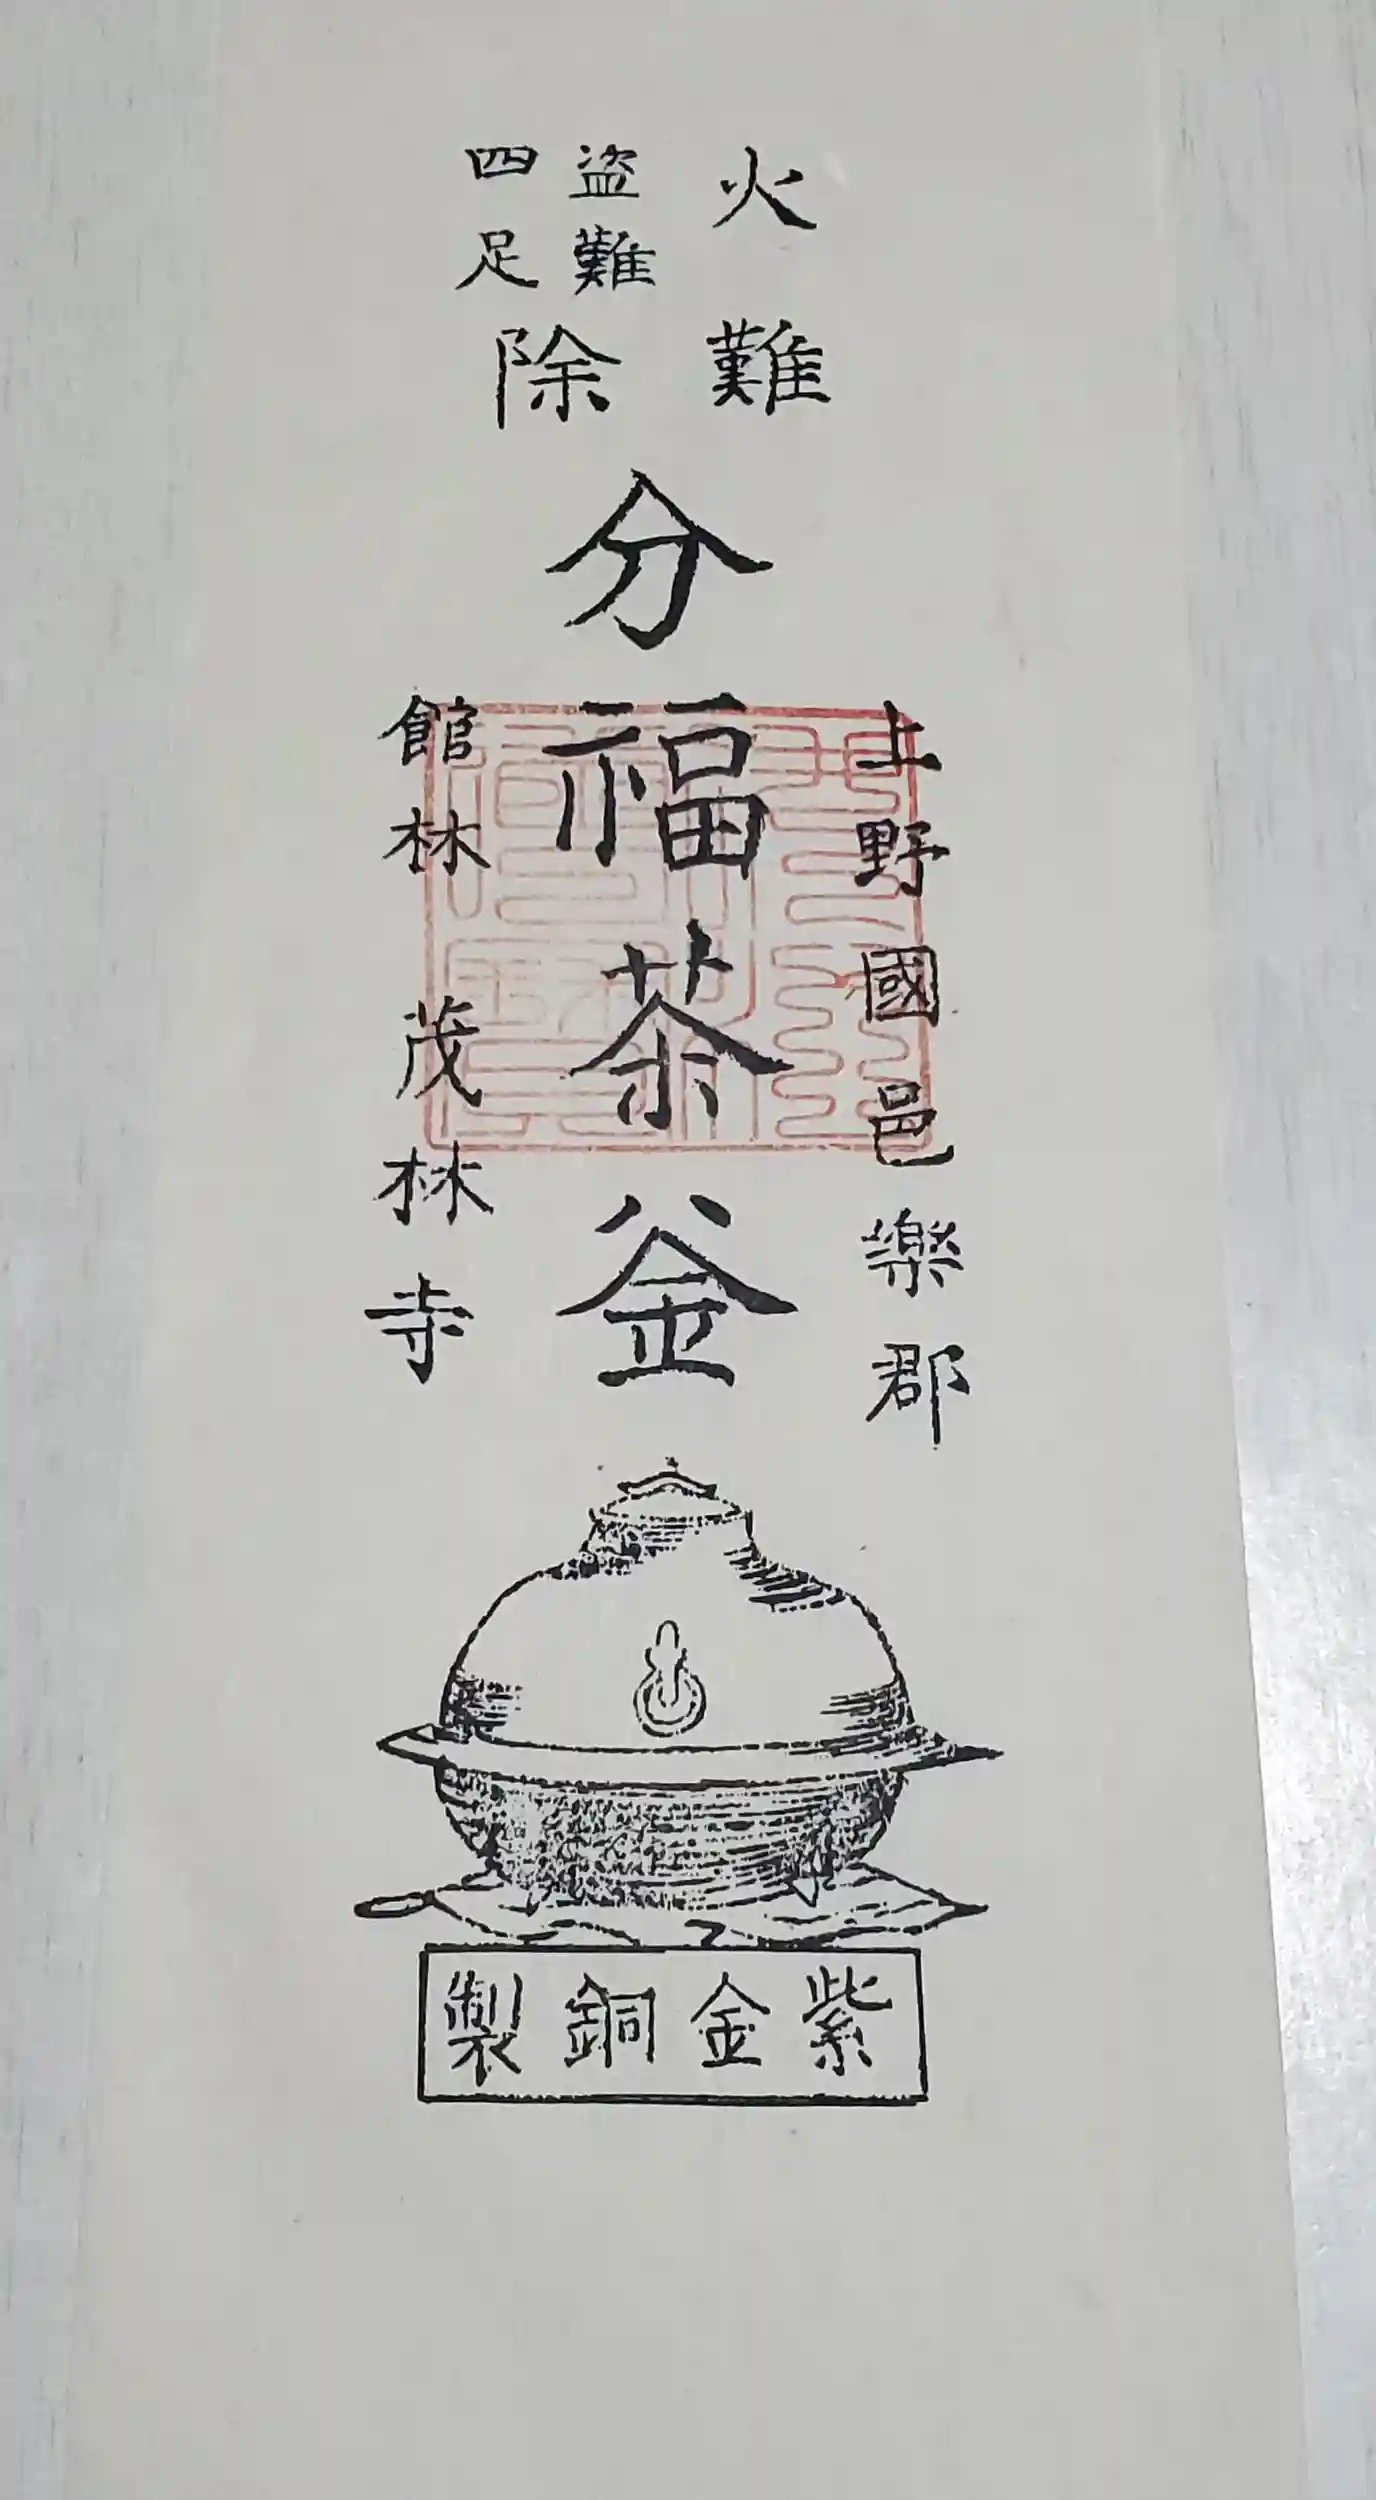 火難
盗難
四足
除
分福茶釜
上野國邑樂郡
館林茂林寺
紫金銅製